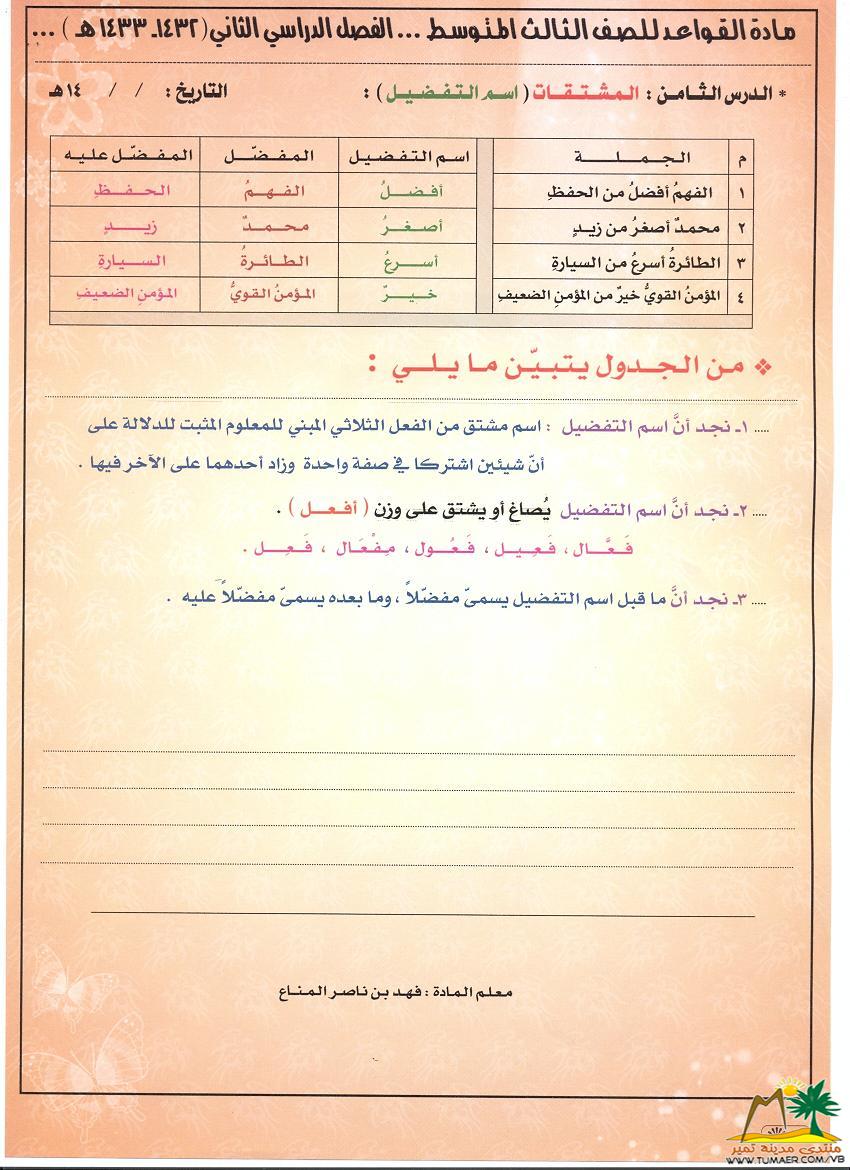 مادة القواعد للصف الثالث المتوسط ... الفصل الدراسي الثاني (١٤٣٢ـ ١٤٣٣ هـ ) ...
* الدرس الثامن : المشتقات ( اسم التفضيل ) : التاريخ : / / ١٤هـ
م الجملة اسم التفضيل المفضّل المفضّل عليه
١ الفهمُ أفضلُ من الحفظِ أفضلُ الفهمُ الحفظِ
٢ محمدٌ أصغرُ من زيدٍ أصغرُ محمدٌ زيدٍ
٣ الطائرةُ أسرعُ من السيارةِ أسرعُ الطائرةُ السيارةِ
٤ المؤمنُ القويُّ خيرٌ من المؤمنِ الضعيفِ خيرٌ المؤمنُ القويُّ المؤمنِ الضعيفِ
❖ من الجدول يتبيّن ما يلي :
..... ١ـ نجد أنَّ اسم التفضيل : اسم مشتق من الفعل الثلاثي المبني للمعلوم المثبت للدلالة على
أنّ شيئين اشتركا في صفة واحدة وزاد أحدهما على الآخر فيها .
..... ٢ـ نجد أنَّ اسم التفضيل يُصاغ أو يشتق على وزن ( أفعل ) .
فَعَّال ، فَعِيل ، فَعُول ، مِفْعَال ، فَعِل .
..... ٣ـ نجد أنَّ ما قبل اسم التفضيل يسمىّ مفضّلاً ، وما بعده يسمىّ مفضّلاً عليه .
معلم المادة : فهد بن ناصر المناع
منتدى مدينة تمير
WWW.TUMAER.COM/VB